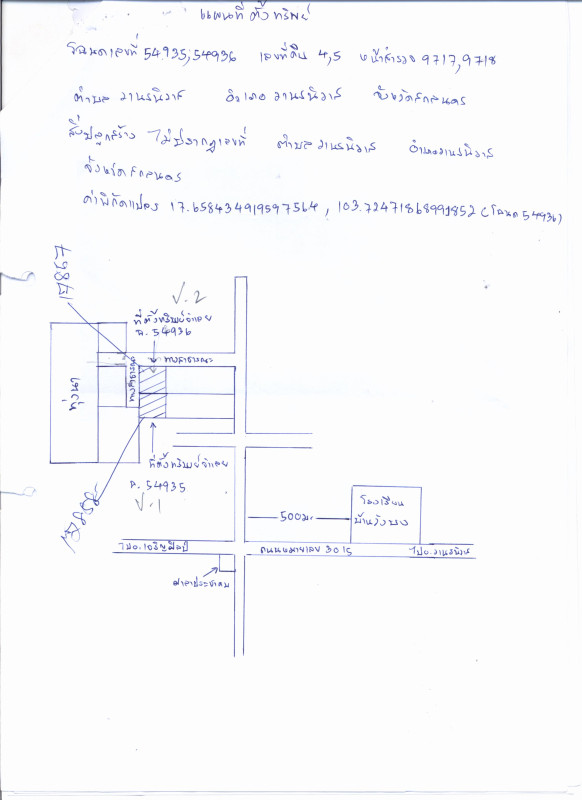 แผนที่ตั้งทรัพย์
โฉนดเลขที่ 54935,54936 เลขที่ดิน 4,5 หน้าสำรวจ 9717,9718
ตำบล วานรนิวาส อำเภอ วานรนิวาส จังหวัดสกลนคร
สิ่งปลูกสร้าง ไม่ปรากฏเลขที่ ตำบล วานรนิวาส อำเภอวานรนิวาส
จังหวัดสกลนคร
ค่าพิกัดแปลง 17.658434919597564, 103.72471868991852 (โฉนด 54936)
ป.2
ที่ตั้งทรัพย์จำนอง
ฉ. 54936
ทางสาธารณะ
ทางสาธารณะ
ทุ่งนา
ที่ตั้งทรัพย์จำนอง
ฉ. 54935
ป.1
500ม.
โรงเรียน
บ้านวังบง
ไปอ.เจริญศิลป์
ถนนหมายเลข 3015
ไปอ.วานรนิวาส
ศาลาประชาคม